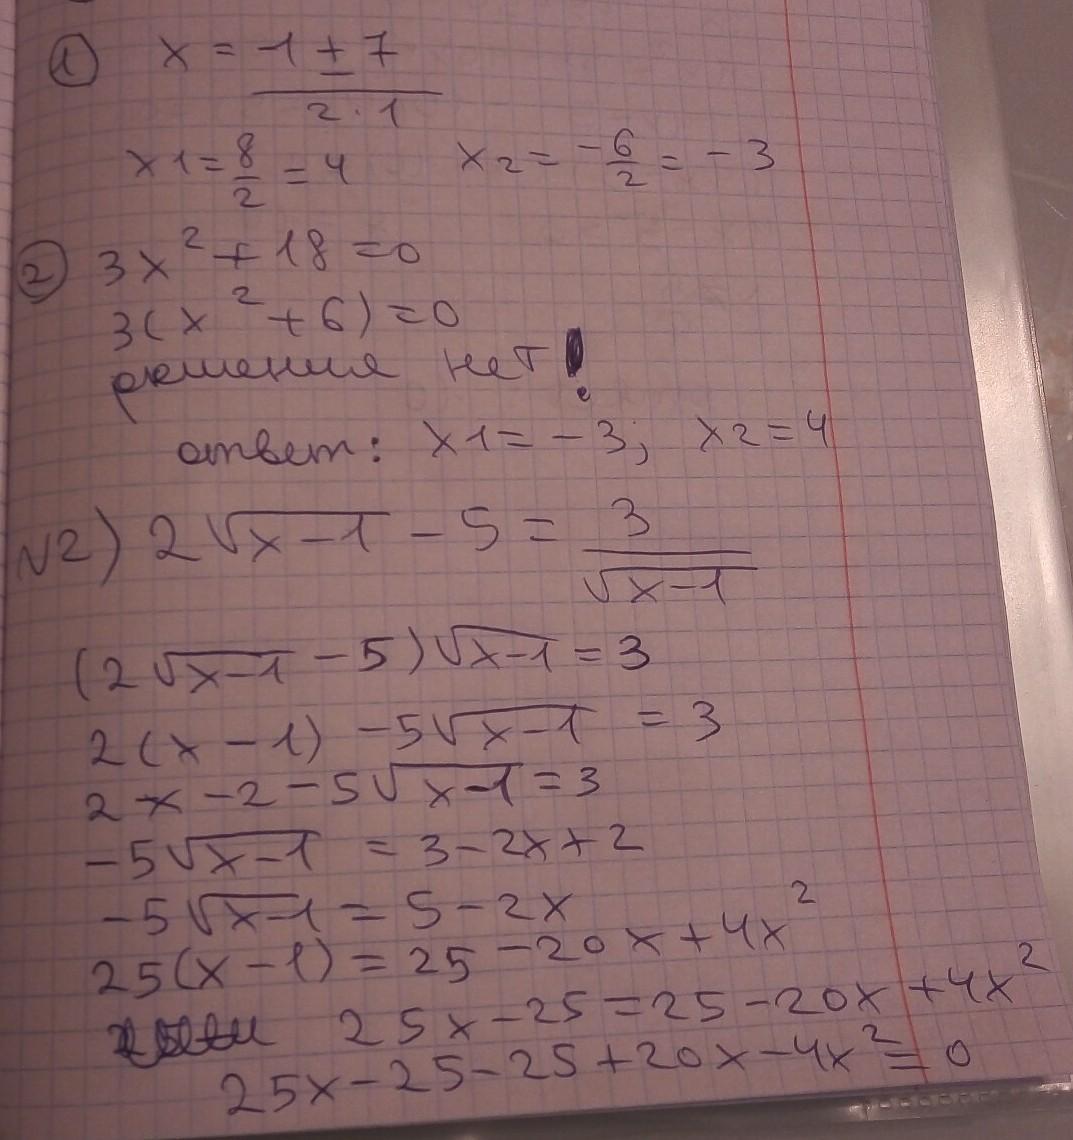 ① x = -1 ± 7 / 2 · 1
x1 = 8/2 = 4 x2 = -6/2 = -3
② 3x² + 18 = 0
3(x² + 6) = 0
решения нет!
ответ: x1 = -3; x2 = 4
√2) 2√x-1 - 5 = 3/√x-1
(2√x-1 - 5)√x-1 = 3
2(x - 1) - 5√x-1 = 3
2x - 2 - 5√x-1 = 3
-5√x-1 = 3 - 2x + 2
-5√x-1 = 5 - 2x
25(x - 1) = 25 - 20x + 4x²
25x - 25 = 25 - 20x + 4x²
25x - 25 - 25 + 20x - 4x² = 0